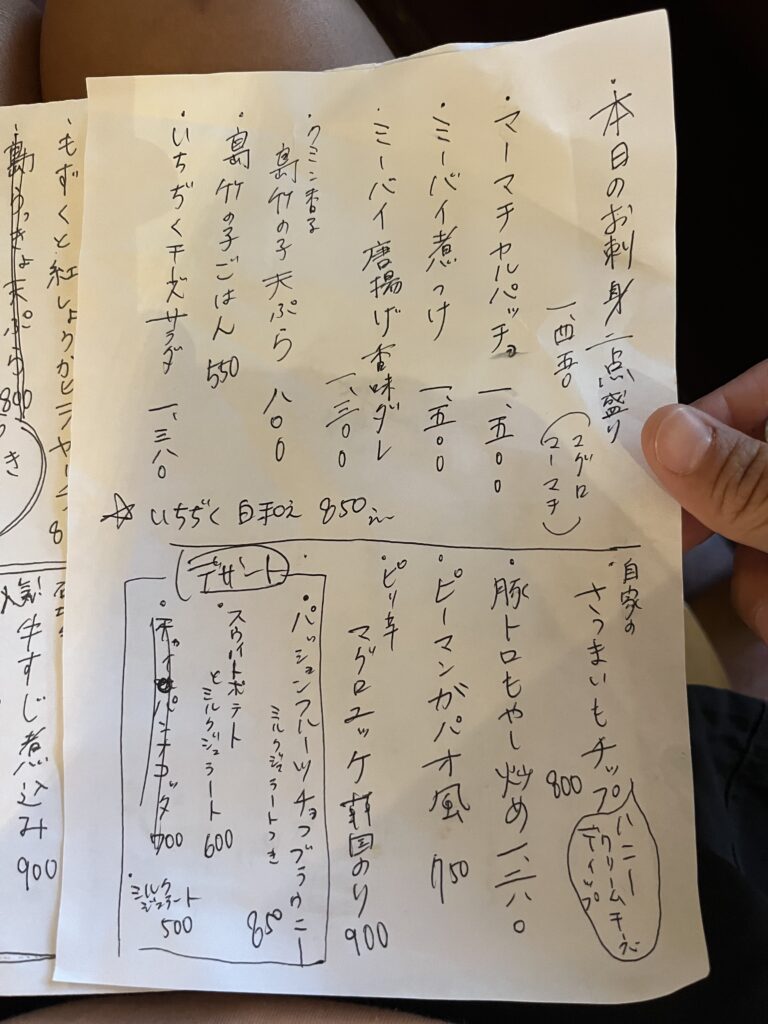 ・本日のお刺身二点盛り
一、四五〇
(マグロ
マーマチ)
・マーマチカルパッチョ 一、五〇〇
・ミーバイ煮つけ 一、五〇〇
・ミーバイ唐揚げ香味ダレ
一、三〇〇
・クミン香る
島竹の子天ぷら 八〇〇
・島竹の子ごはん 550
・いちぢくチーズサラダ 一、三八〇
☆ いちぢく白和え 850
・自家の
さつまいもチップ
800
ハニー
クリームチーズ
ディップ
・豚トロもやし炒め 一、二八〇
・ピーマンガパオ風 750
・ピリ辛
マグロユッケ 韓国のり 900
デザート
・パッションフルーツチョコブラウニー
ミルクジェラートつき
850
・スウィートポテト
とミルクジェラート
600
パンナコッタ
700
・ミルク
ジェラート
500
・もずくと紅しょうがヒラヤーチー 8
島らっきょ天ぷら 800
き
人気!牛すじ煮込み 900